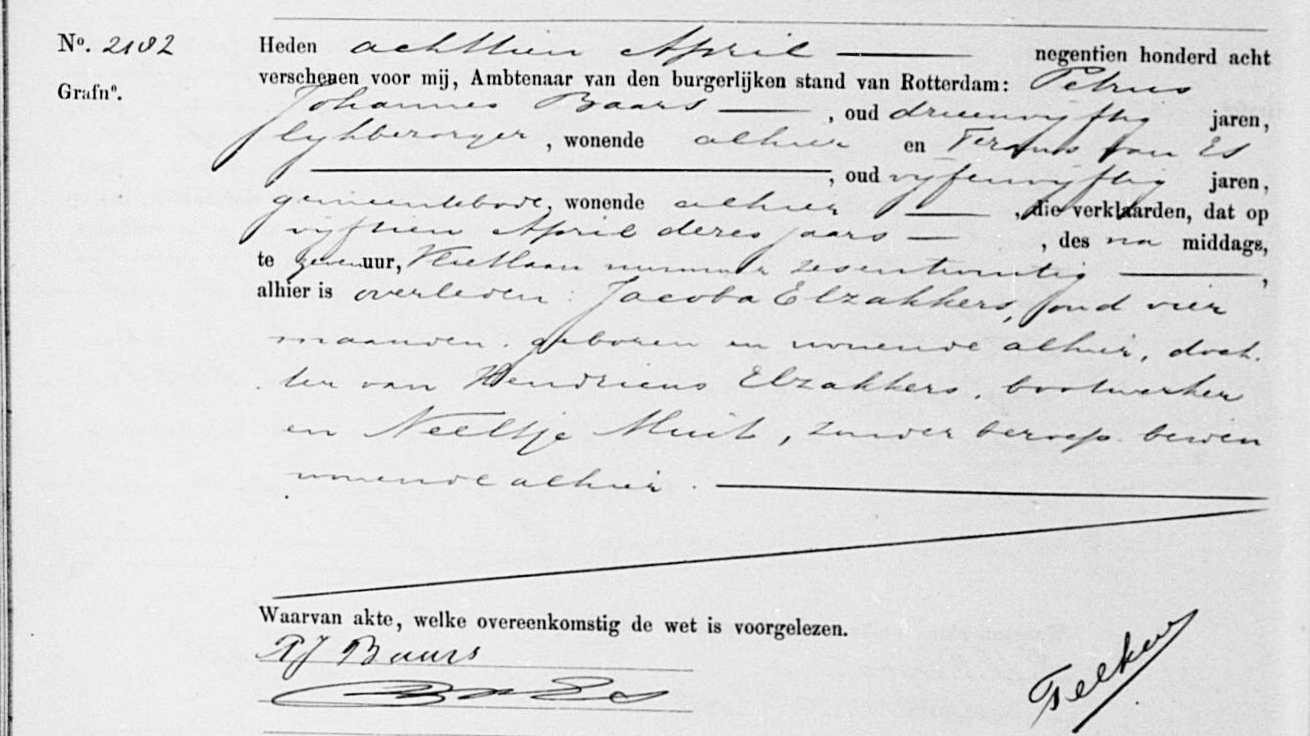 No. 2182 Heden achttien April negentien honderd acht
Grafno. verschenen voor mij, Ambtenaar van den burgerlijken stand van Rotterdam: Petrus
Johannes Baars, oud drieenvyftig jaren,
lykbezorger, wonende alhier en van Es
, oud vyfenvyftig jaren,
gemeentebode, wonende alhier, die verklaarden, dat op
vyftien April dezes jaars, des na middags,
te zeven uur, nummer zesentwintig,
alhier is overleden: Jacoba Elzakkers, oud vier
maanden, geboren en wonende alhier, doch-
ter van Hendricus Elzakkers, bootwerker
en Neeltje Muit, zonder beroep, beiden
wonende alhier.
Waarvan akte, welke overeenkomstig de wet is voorgelezen.
PJ Baars
van Es